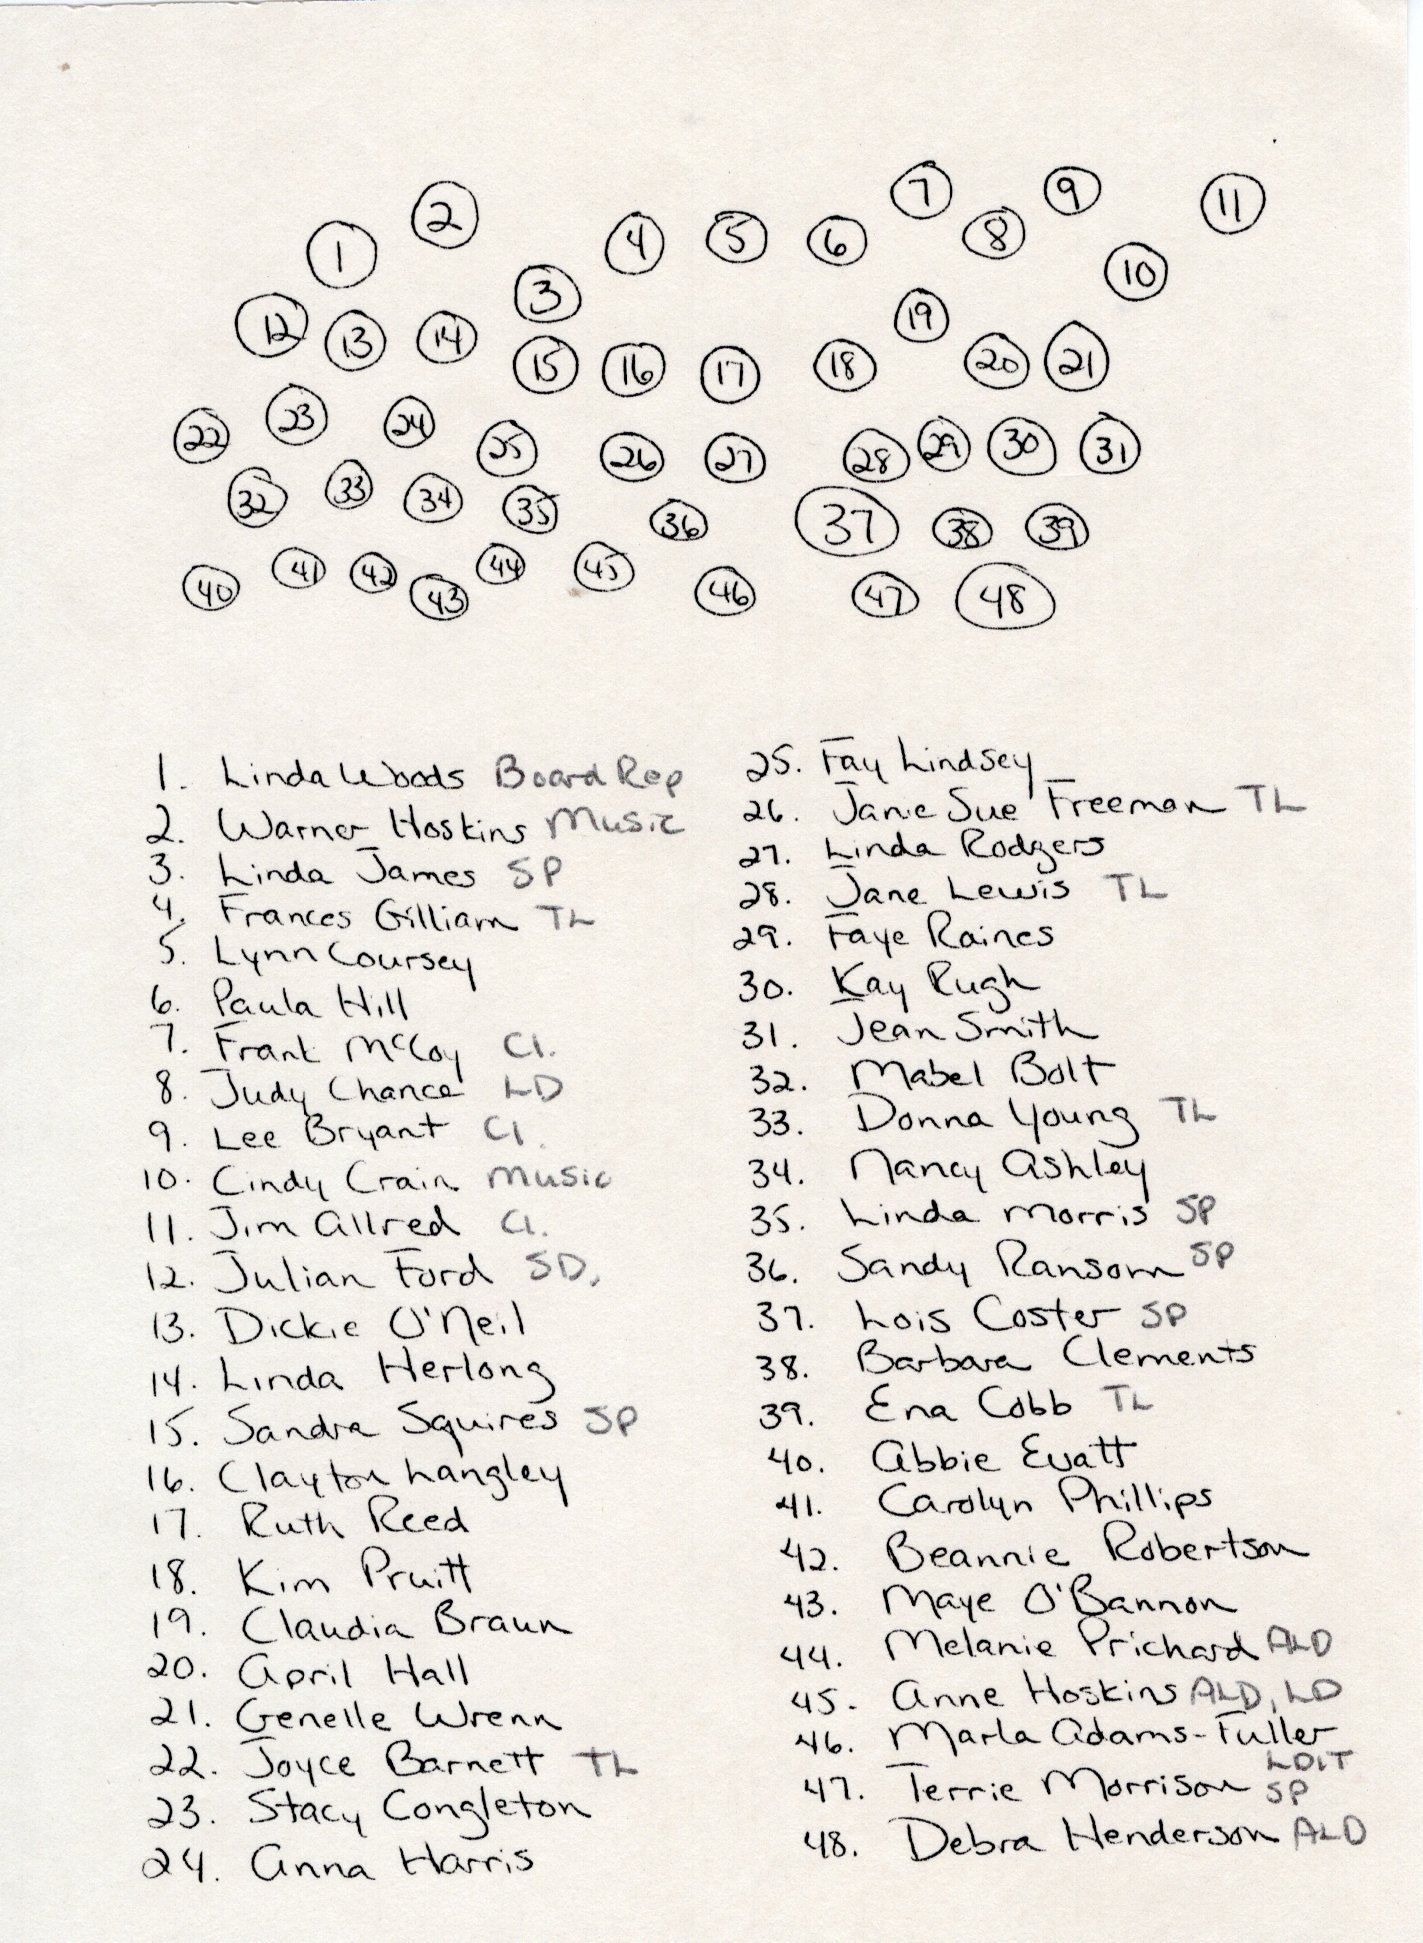 1 2 3 4 5 6 7 8 9 10 11
12 13 14 15 16 17 18 19 20 21
22 23 24 25 26 27 28 29 30 31
32 33 34 35 36 37 38 39
40 41 42 43 44 45 46 47 48
1. Linda Woods Board Rep
2. Warner Hoskins Music
3. Linda James SP
4. Frances Gilliam TL
5. Lynn Coursey
6. Paula Hill
7. Frank McCoy Cl.
8. Judy Chance LD
9. Lee Bryant Cl.
10. Cindy Crain Music
11. Jim Allred Cl.
12. Julian Ford SD.
13. Dickie O'Neil
14. Linda Herlong
15. Sandra Squires SP
16. Clayton Langley
17. Ruth Reed
18. Kim Pruitt
19. Claudia Braun
20. April Hall
21. Genelle Wrenn
22. Joyce Barnett TL
23. Stacy Congleton
24. Anna Harris
25. Fay Lindsey
26. Janie Sue Freeman TL
27. Linda Rodgers
28. Jane Lewis TL
29. Faye Raines
30. Kay Rugh
31. Jean Smith
32. Mabel Bolt
33. Donna Young TL
34. Nancy Ashley
35. Linda Morris SP
36. Sandy Ransom SP
37. Lois Coster SP
38. Barbara Clements
39. Ena Cobb TL
40. Abbie Evatt
41. Carolyn Phillips
42. Beannie Robertson
43. Maye O'Bannon
44. Melanie Prichard ALD
45. Anne Hoskins ALD, LD
46. Marla Adams-Fuller
LDIT
47. Terrie Morrison SP
48. Debra Henderson ALD